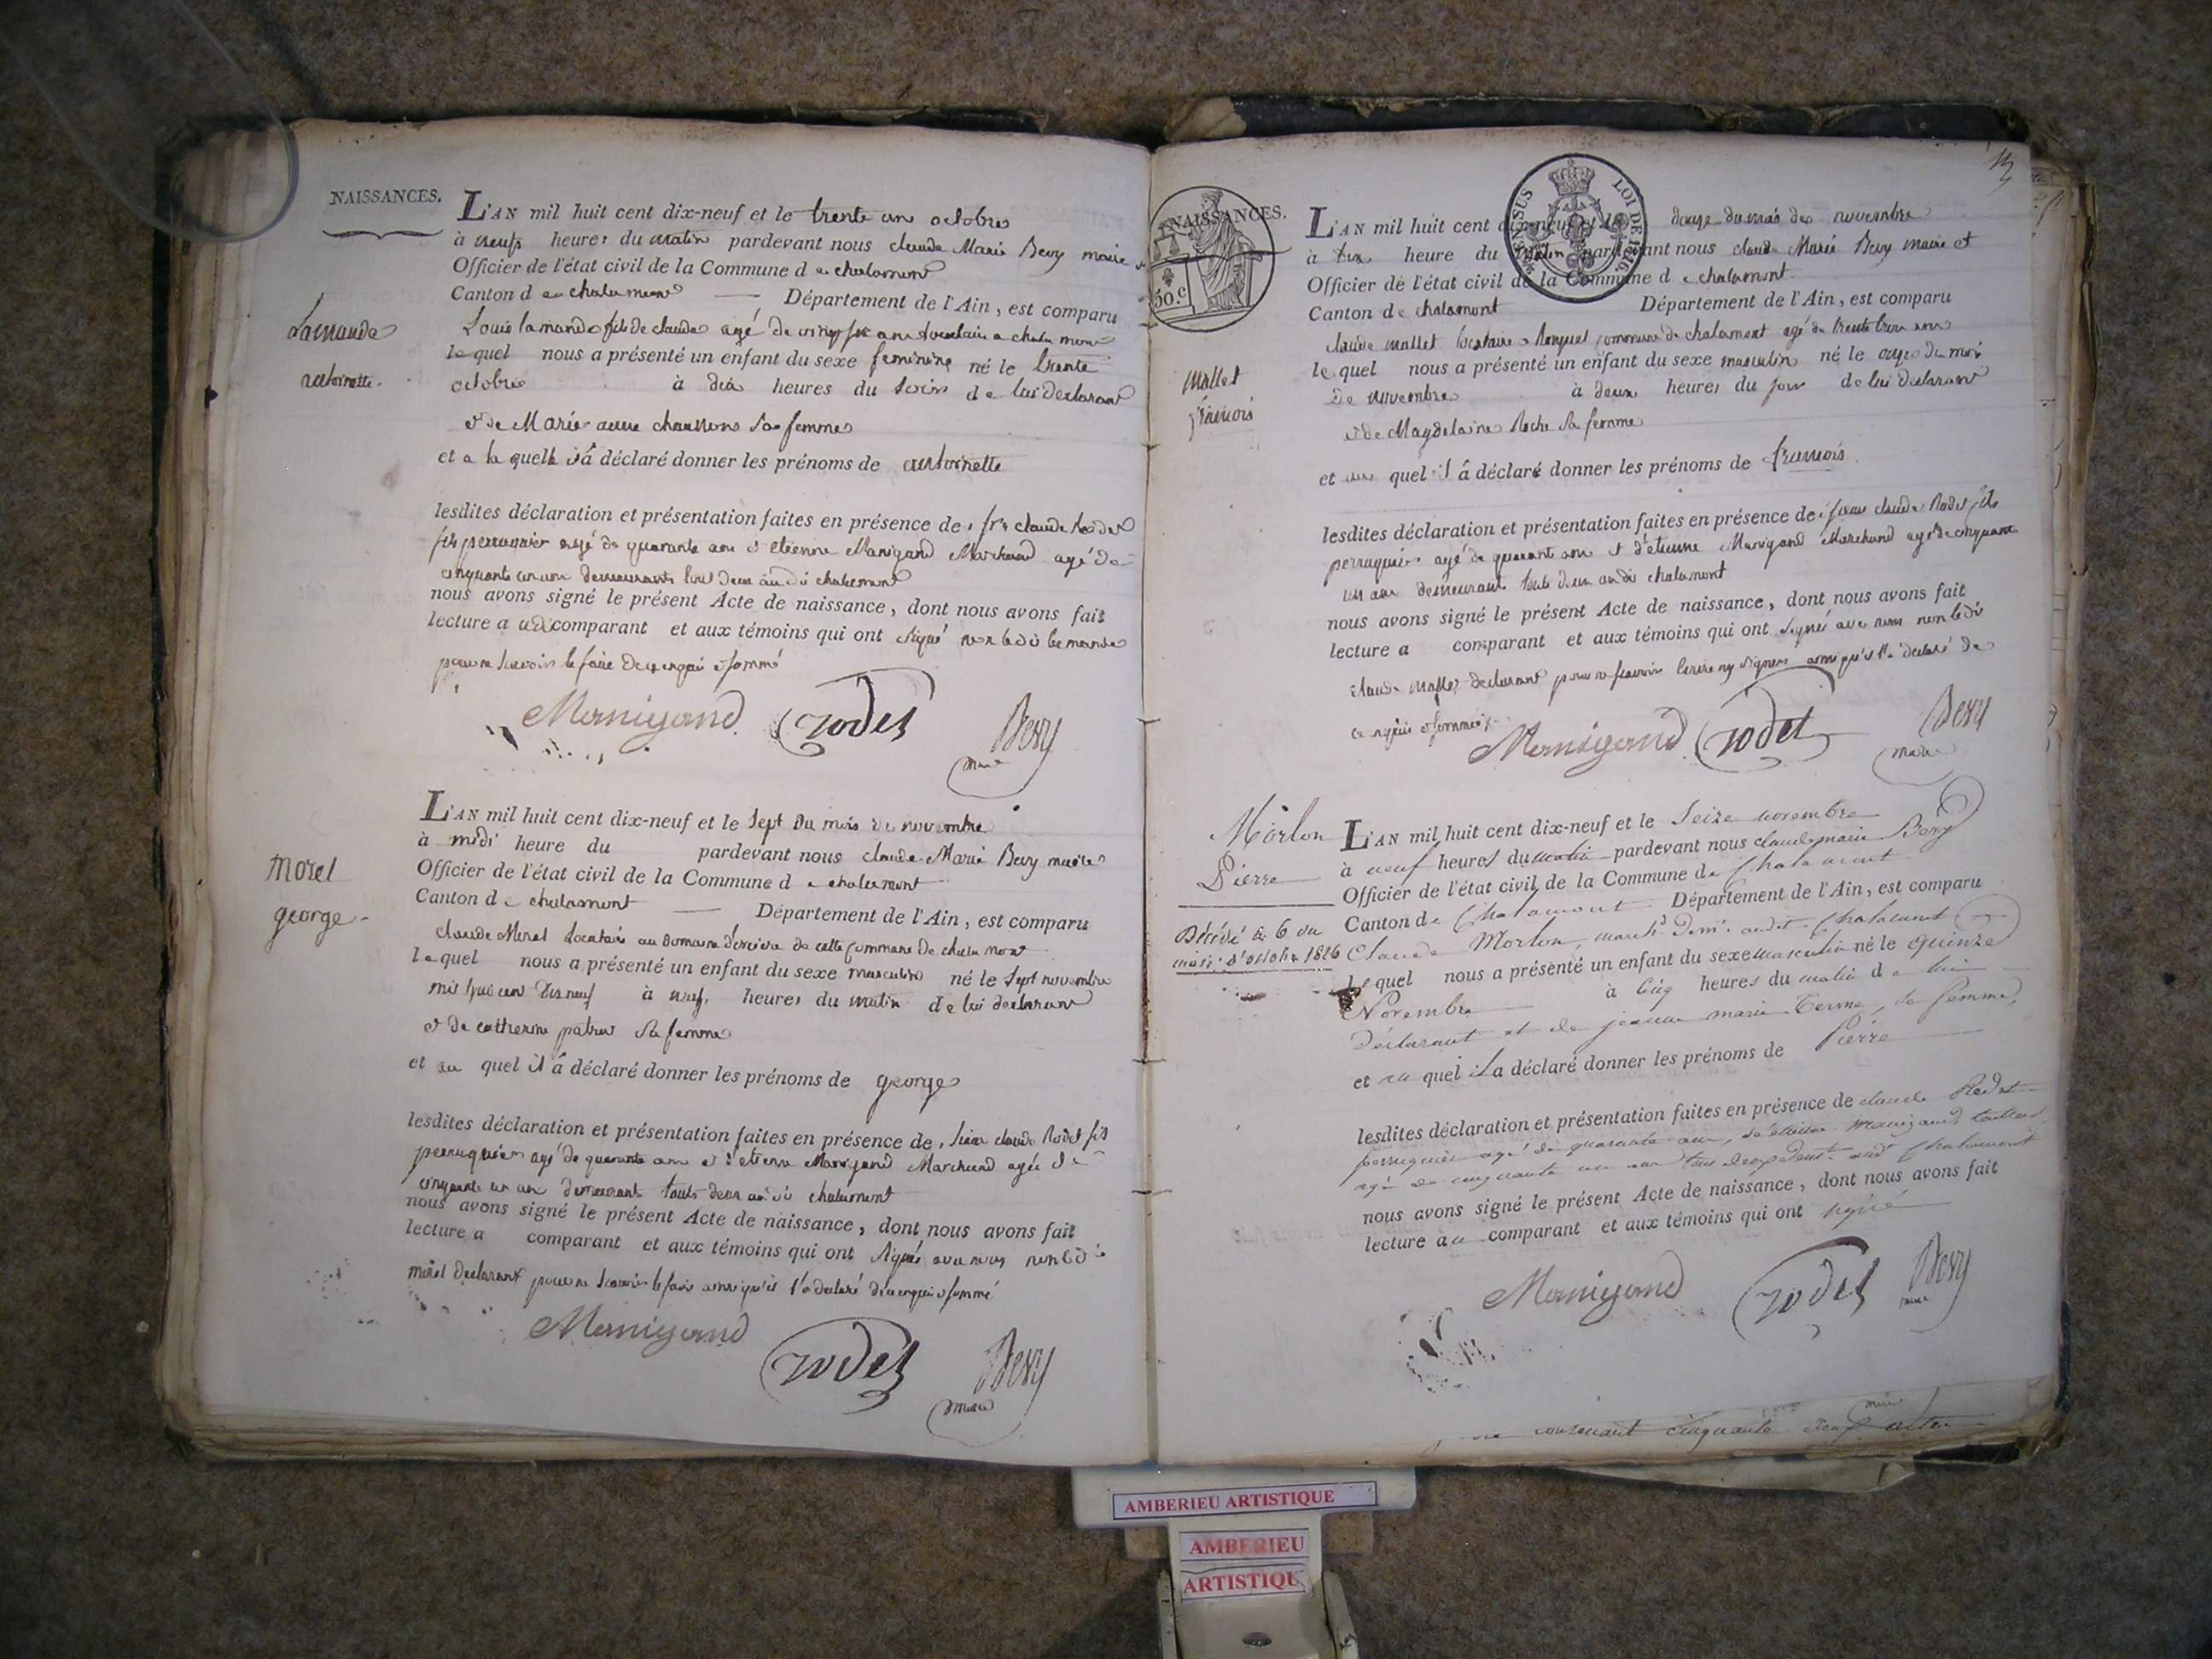 NAISSANCES.
L'AN mil huit cent dix-neuf et le trente un octobre
à neufs heures du matin pardevant nous claude Marie Bevy maire
Officier de l'état civil de la Commune de chalamont
Canton de chalamont Département de l'Ain, est comparu
Lamande
antoinette.
Louis lamande fils de claude agé de vingt six ans locataire a chalamont
lequel nous a présenté un enfant du sexe feminine né le trente
octobre à dix heures du soir de lui declarant
& de Marie anne chaussons sa femme
et a la quelle il â déclaré donner les prénoms de antoinette
lesdites déclaration et présentation faites en présence de claude Rodet
fils perruquier agé de quarante ans & etienne Manigand Marchand agé de
cinquante un an demeurants tout deux audit chalamont
nous avons signé le présent Acte de naissance, dont nous avons fait
lecture a comparant et aux témoins qui ont signé non ledit lamande
pour ne scavoir le faire de ce enquis & sommé
Manigand rodet Bevy
maire
L'AN mil huit cent dix-neuf et le sept du mois de novembre
à midi heure du pardevant nous claude Marie Bevy maire
Officier de l'état civil de la Commune de chalamont
Canton de chalamont Département de l'Ain, est comparu
morel
george
claude Morel locataire au domaine de cette commune de chalamont
lequel nous a présenté un enfant du sexe masculin né le sept novembre
mil huit cent dix neuf à neuf heures du matin de lui declarant
& de catherine patru sa femme
et au quel il â déclaré donner les prénoms de george
lesdites déclaration et présentation faites en présence de sieur claude Rodet fils
perruquier agé de quarante ans & d'etienne Manigand Marchand agé de
cinquante un an demeurant touts deux audit chalamont
nous avons signé le présent Acte de naissance, dont nous avons fait
lecture a comparant et aux témoins qui ont signés avec nous non ledit
morel declarant pour ne scavoir le faire ainsi qu'il l'a declaré de ce enquis & sommé
Manigand rodet Bevy
maire
NAISSANCES.
50.c
SUSSUS LOI DE 1816
L'AN mil huit cent dix-neuf et le douze du mois de novembre
à heure du matin pardevant nous claude Marie Bevy maire et
Officier de l'état civil de la Commune de chalamont
Canton de chalamont Département de l'Ain, est comparu
claude mallet locataire a commune de chalamont agé de trente trois ans
Mallet
francois
lequel nous a présenté un enfant du sexe masculin né le onze du mois
de novembre à deux heures du jour de lui declarant
& de Magdelaine Roche sa femme
et au quel il â déclaré donner les prénoms de francois.
lesdites déclaration et présentation faites en présence de sieur claude Rodet fils
perruquier agé de quarante ans & d'etienne Manigand Marchand agé de cinquante
un an demeurant touts deux audit chalamont
nous avons signé le présent Acte de naissance, dont nous avons fait
lecture a comparant et aux témoins qui ont signés avec nous non ledit
claude mallet declarant pour ne scavoir ecrire ny signer ainsi qu'il l'a declaré de
ce enquis & sommé
Manigand rodet Bevy
maire
Morlon
Pierre
Décédé le 6 du
mois d'octobre 1826
L'AN mil huit cent dix-neuf et le seize novembre
à neuf heures du matin pardevant nous claude marie Bevy
Officier de l'état civil de la Commune de Chalamont
Canton de Chalamont Département de l'Ain, est comparu
Claude Morlon, march.d dem.t audit Chalamont
lequel nous a présenté un enfant du sexe masculin né le quinze
Novembre à cinq heures du matin de lui
déclarant et de jeanne marie Terme, sa femme,
et au quel il a déclaré donner les prénoms de Pierre
lesdites déclaration et présentation faites en présence de claude Rodet
perruquier agé de quarante ans, d'etienne Manigand,
agé de cinquante un an tous deux dem.t aud. Chalamont
nous avons signé le présent Acte de naissance, dont nous avons fait
lecture au comparant et aux témoins qui ont signé
Manigand rodet Bevy
maire
contenant cinquante
AMBERIEU ARTISTIQUE
AMBERIEU
ARTISTIQU